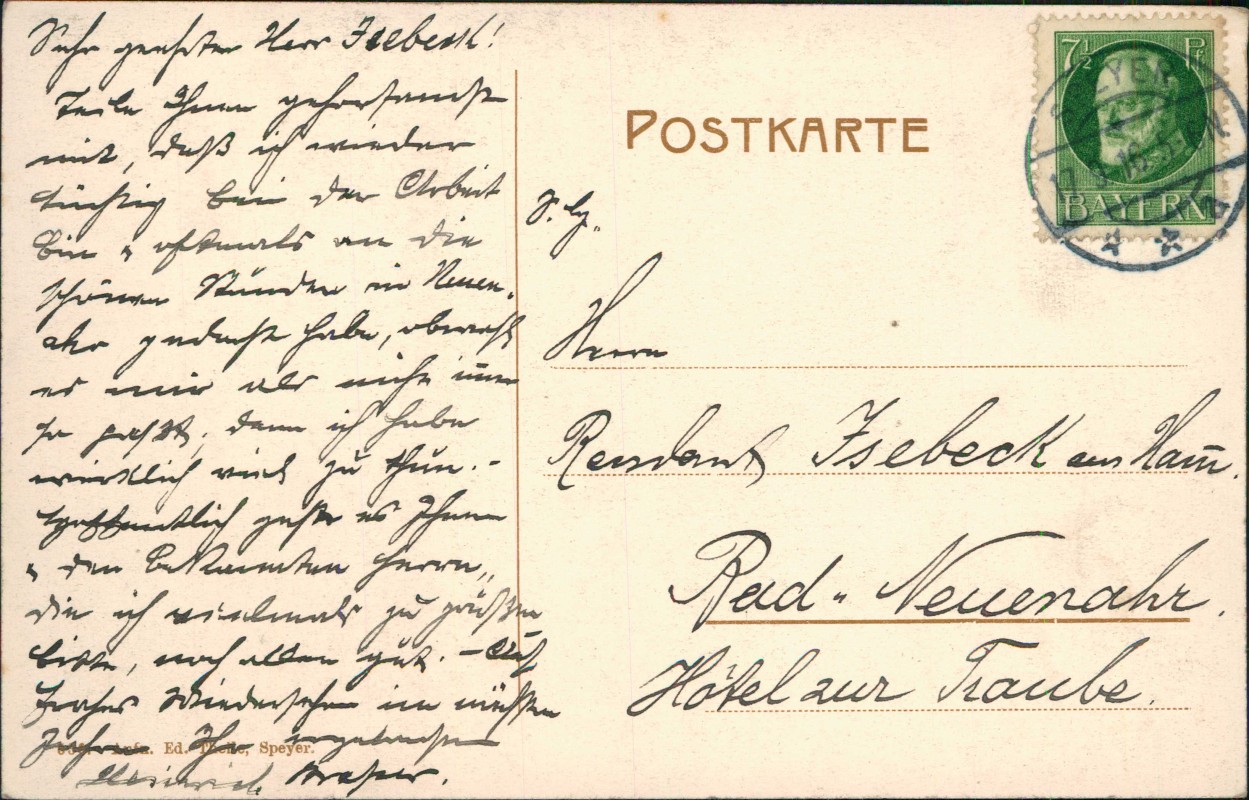 Sehr geehrter Herr Isebeck!
Teile Ihnen gehorsamst
mit, daß ich wieder
tüchtig bei der Arbeit
bin u. oftmals an die
schönen Stunden in Neuen-
ahr gedacht habe, obwohl
es mir als nicht im̅er
so paßt, denn ich habe
wirklich viel zu thun. -
Hoffentlich geht es Ihnen
u. den bekannten Herrn,
die ich vielmals zu grüßen
bitte, noch allen gut. - Auf
frohes Wiedersehen im nächsten
Jahre Ihr ergebenster
Heinrich
Ed. Theile, Speyer.
POSTKARTE
7½ Pf
BAYERN
SPEYER
17. 9. 16. 5-
S. H.
Herrn
Rendant Isebeck aus Ham̅.
Bad-Neuenahr.
Hôtel zur Traube.